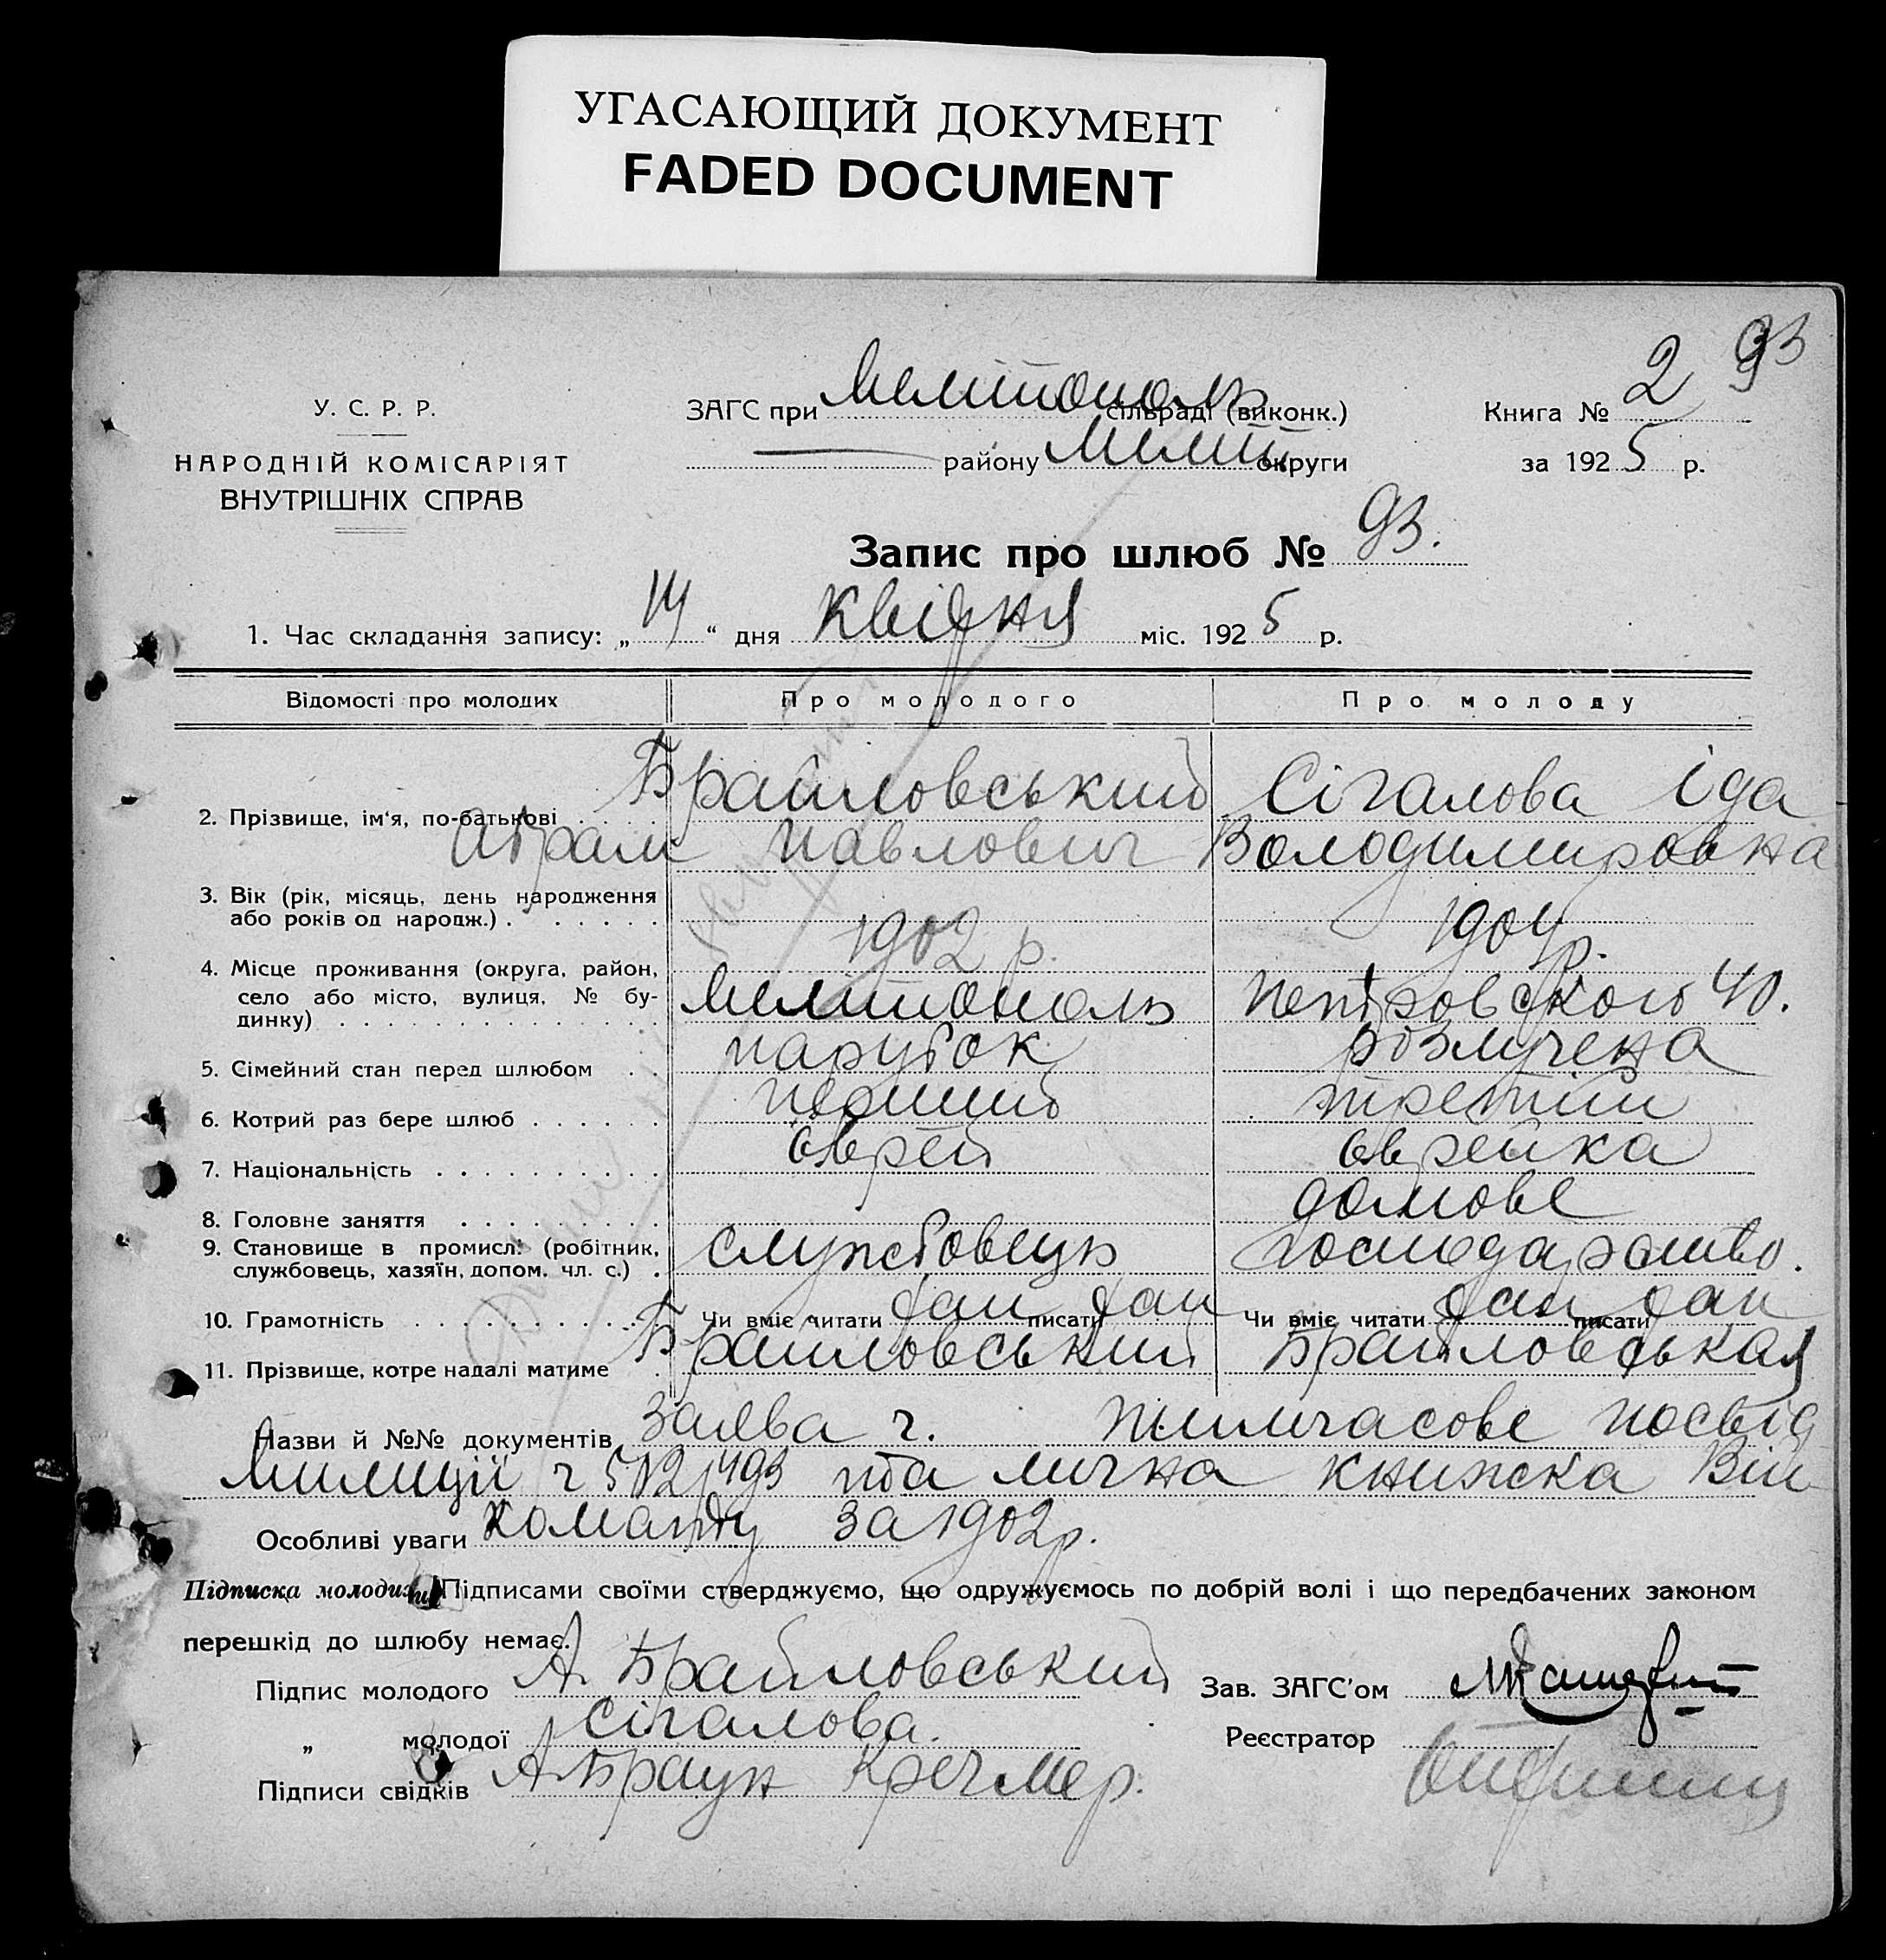 УГАСАЮЩИЙ ДОКУМЕНТ
FADED DOCUMENT
93
У. С. Р. Р.
НАРОДНІЙ КОМІСАРІЯТ
ВНУТРІШНІХ СПРАВ
ЗАГС при Мелітополь сільраді (виконк.)
— району Меліт округи
Книга № 2
за 1925 р.
Запис про шлюб № 93.
1. Час складання запису: „14“ дня квідня міс. 1925 р.
Відомості про молодих Про молодого Про молоду
2. Прізвище, ім‘я, по-батькові . . . . Брайловський Сігалова Іда
Абрам Павлович Володимировна
3. Вік (рік, місяць, день народження
або років од народж.) . . . . . . 1902 р. 1904 р.
4. Місце проживання (округа, район,
село або місто, вулиця, № бу-
динку) . . . . . . . . . . . . . Мелітополь Петровского 40.
5. Сімейний стан перед шлюбом . . парубок розлучена
6. Котрий раз бере шлюб . . . . . . перший третій
7. Національність . . . . . . . . . . єврей єврейка
8. Головне заняття . . . . . . . . . домове
9. Становище в промисл. (робітник,
службовець, хазяїн, допом. чл. с.) . службовець господарство.
10. Грамотність . . . . . . . . . . . Чи вміє читати так писати так Чи вміє читати так писати так
11. Прізвище, котре надалі матиме . Брайловський Брайловськая
Назви й №№ документів заява г. тимчасове посвід
милиції г та лична книжка Вій
Особливі уваги команду за 1902 р.
Підписка молодих. Підписами своїми стверджуємо, що одружуємось по добрій волі і що передбачених законом
перешкід до шлюбу немає.
Підпис молодого А. Брайловський Зав. ЗАГС’ом
„ молодої Сігалова. Реєстратор
Підписи свідків А. Браун Кречмер.